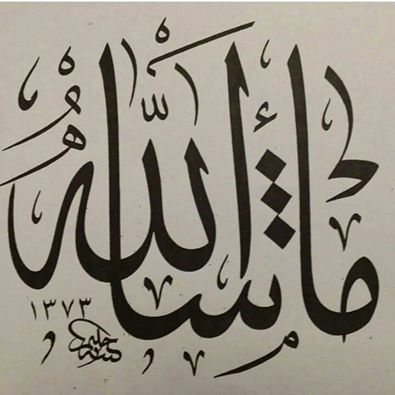 ما شاء الله
١٣٧٣